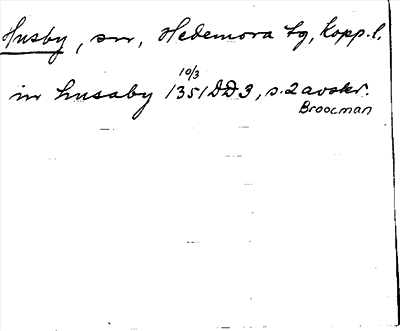 Husby, sn, Hedemora tg, Kopp. l.
10/3
in husaby 1351 DD3, s. 2 avskr.
Broocman